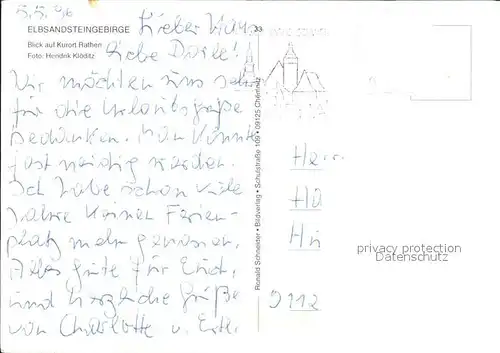 5.5.96
Lieber Hans,
ELBSANDSTEINGEBIRGE
33
Liebe Dorle!
Blick auf Kurort Rathen
Foto: Hendrik Klöditz
Wir möchten uns sehr
für die Urlaubsgrüße
bedanken. Man könnte
fast neidig werden.
Ich habe schon viele
Jahre keinen Ferien-
platz mehr genossen.
Alles gute für Euch,
und herzliche Grüße
von Charlotte u.
Ronald Schneider • Bildverlag • Schulstraße 109 • 09125 Chemnitz
Herr
Ha
Hi
privacy protection
Datenschutz
9112